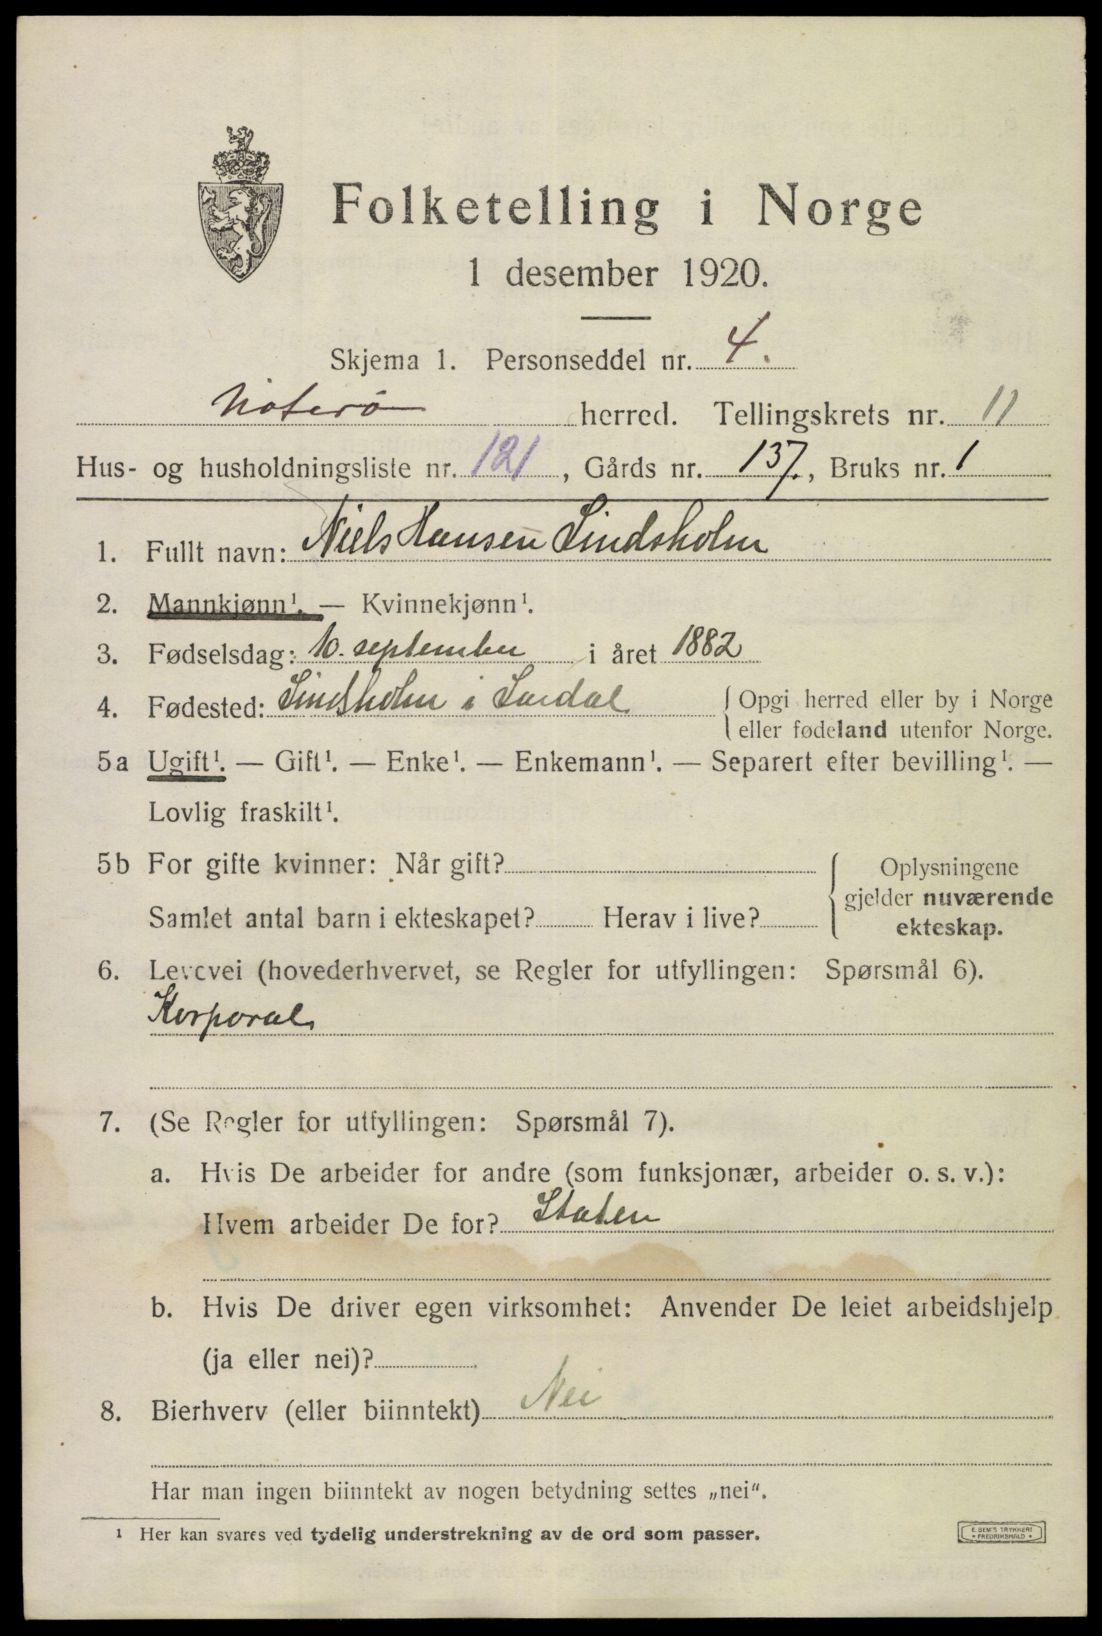 Folketelling i Norge
1 desember 1920.
Skjema 1. Personseddel nr. 4.
Nøterø herred. Tellingskrets nr. 11
Hus- og husholdningsliste nr. 121, Gårds nr. 137., Bruks nr. 1
1. Fullt navn: Niels Hansen Lindsholm
2. Mannkjønn¹. — Kvinnekjønn¹.
3. Fødselsdag: 10. september i året 1882
4. Fødested: Lindsholm i Lardal {Opgi herred eller by i Norge
eller fødeland utenfor Norge.
5a Ugift¹. — Gift¹. — Enke¹. — Enkemann¹. — Separert efter bevilling¹. —
Lovlig fraskilt¹.
5b For gifte kvinner: Når gift?
Samlet antal barn i ekteskapet? Herav i live?
{Oplysningene
gjelder nuværende
ekteskap.
6. Levevei (hovederhvervet, se Regler for utfyllingen: Spørsmål 6).
Korporal
7. (Se Regler for utfyllingen: Spørsmål 7).
a. Hvis De arbeider for andre (som funksjonær, arbeider o. s. v.):
Hvem arbeider De for? Staten
b. Hvis De driver egen virksomhet: Anvender De leiet arbeidshjelp
(ja eller nei)?
8. Bierhverv (eller biinntekt) Nei
Har man ingen biinntekt av nogen betydning settes „nei".
¹ Her kan svares ved tydelig understrekning av de ord som passer.
E. SEM'S TRYKKERI
FREDRIKSHALD